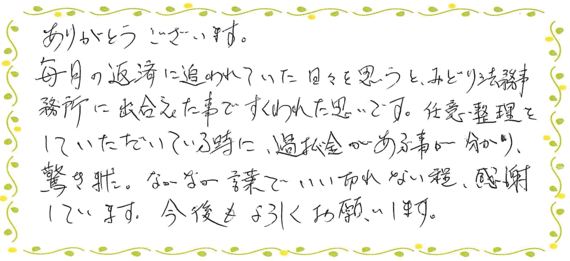 ありがとうございます。
毎月の返済に追われていた日々を思うと、みどり法務事
務所に出合えた事ですくわれた思いです。任意整理を
していただいている時に、過払金がある事が分かり、
驚きました。なかなか言葉でいい切れない程、感謝
しています。今後もよろしくお願いします。